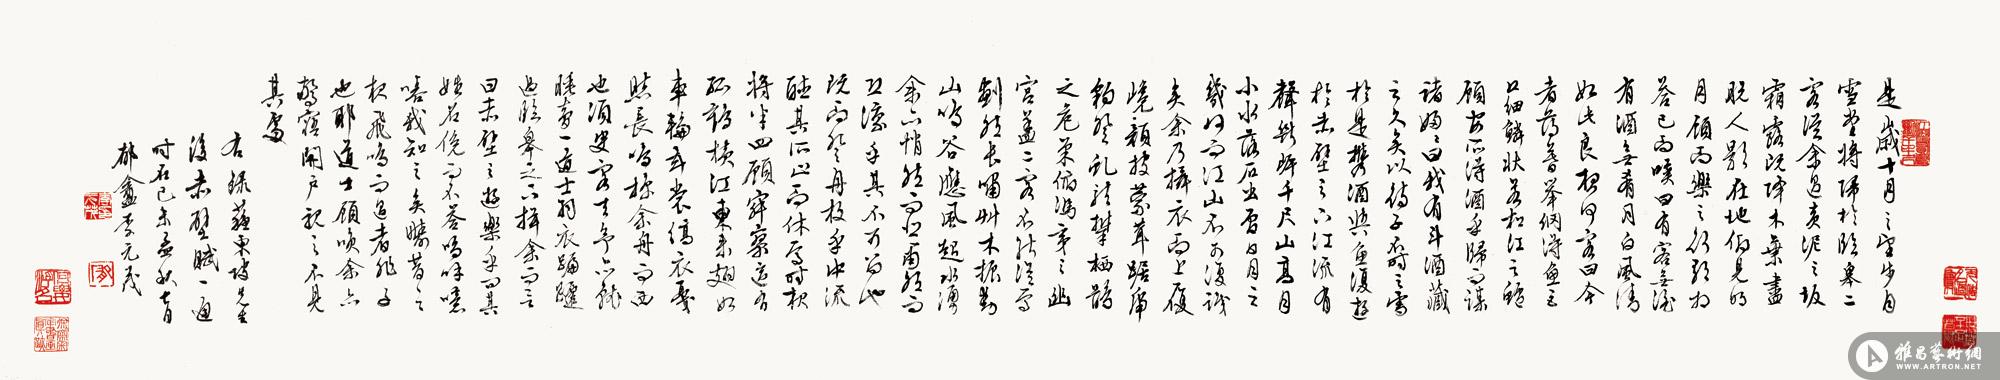 是歲十月之望步自
雪堂將歸於臨皋二
客從余過黃泥之坂
霜露既降木葉盡
脫人影在地仰見明
月顧而樂之行歌相
答已而嘆曰有客無酒
有酒無肴月白風清
如此良夜何客曰今
者薄暮舉網得魚巨
口細鱗狀若松江之鱸
顧安所得酒乎歸而謀
諸婦婦曰我有斗酒藏
之久矣以待子不時之需
於是攜酒與魚復遊
於赤壁之下江流有
聲斷岸千尺山高月
小水落石出曾日月之
幾何而江山不可復識
矣余乃攝衣而上履
巉巖披蒙茸踞虎
豹登虬龍攀棲鶻
之危巢俯馮夷之幽
宮蓋二客不能從焉
劃然長嘯艸木振動
山鳴谷應風起水湧
余亦悄然而悲肅然而
恐凜乎其不可留也
反而登舟放乎中流
聽其所止而休焉時夜
將半四顧寂寥適有
孤鶴橫江東來翅如
車輪玄裳縞衣戛
然長鳴掠余舟而西
也須臾客去予亦就
睡夢一道士羽衣蹁躚
過臨皋之下揖余而言
曰赤壁之遊樂乎問其
姓名俛而不答嗚呼噫
嘻我知之矣疇昔之
夜飛鳴而過者非子
也耶道士顧笑余亦
驚寤開戶視之不見
其處
右錄蘇東坡先生
後赤壁賦一通
時在己未孟秋七月
郁盦李元茂
雅昌藝術網
WWW.ARTRON.NET